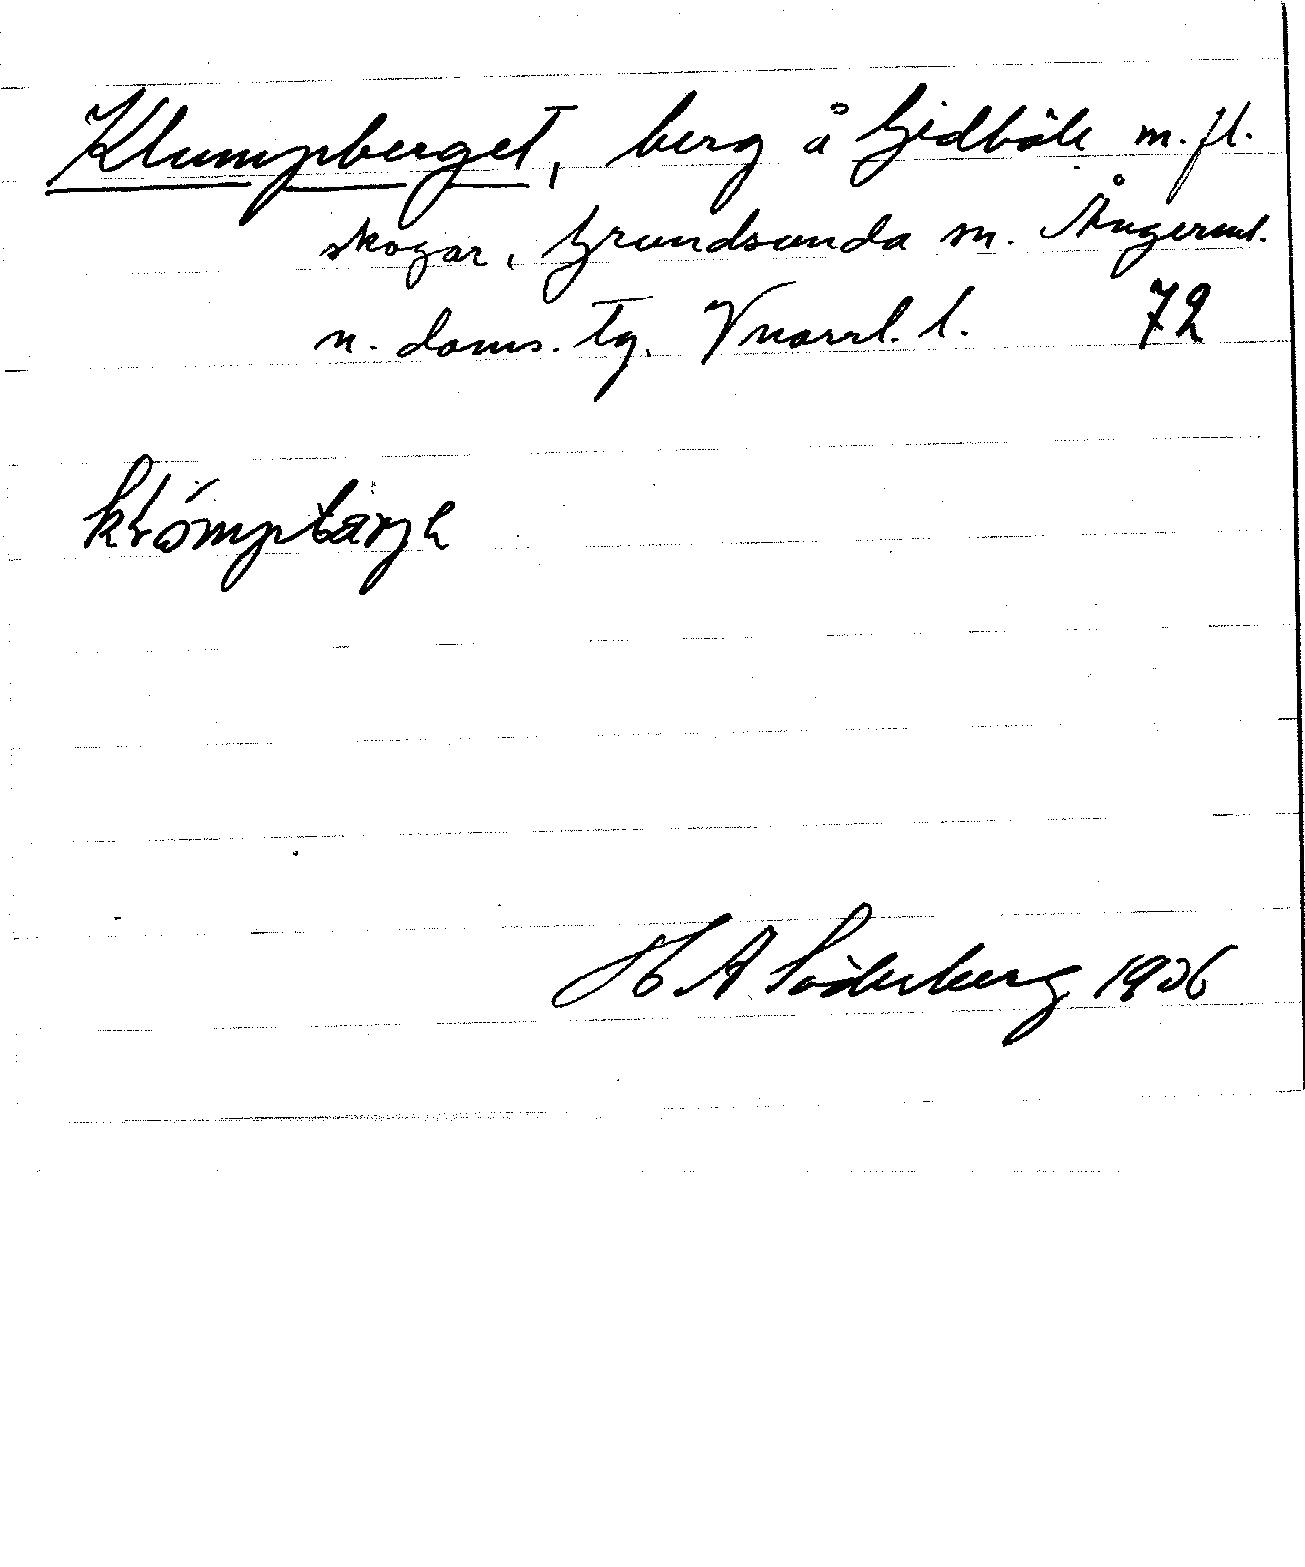 Klumpberget, berg å Gidböle m.fl.
skogar, Grundsunda sn. Ångerml.
n. doms. tg. Vnorrl. l. 72
H A Söderberg 1926